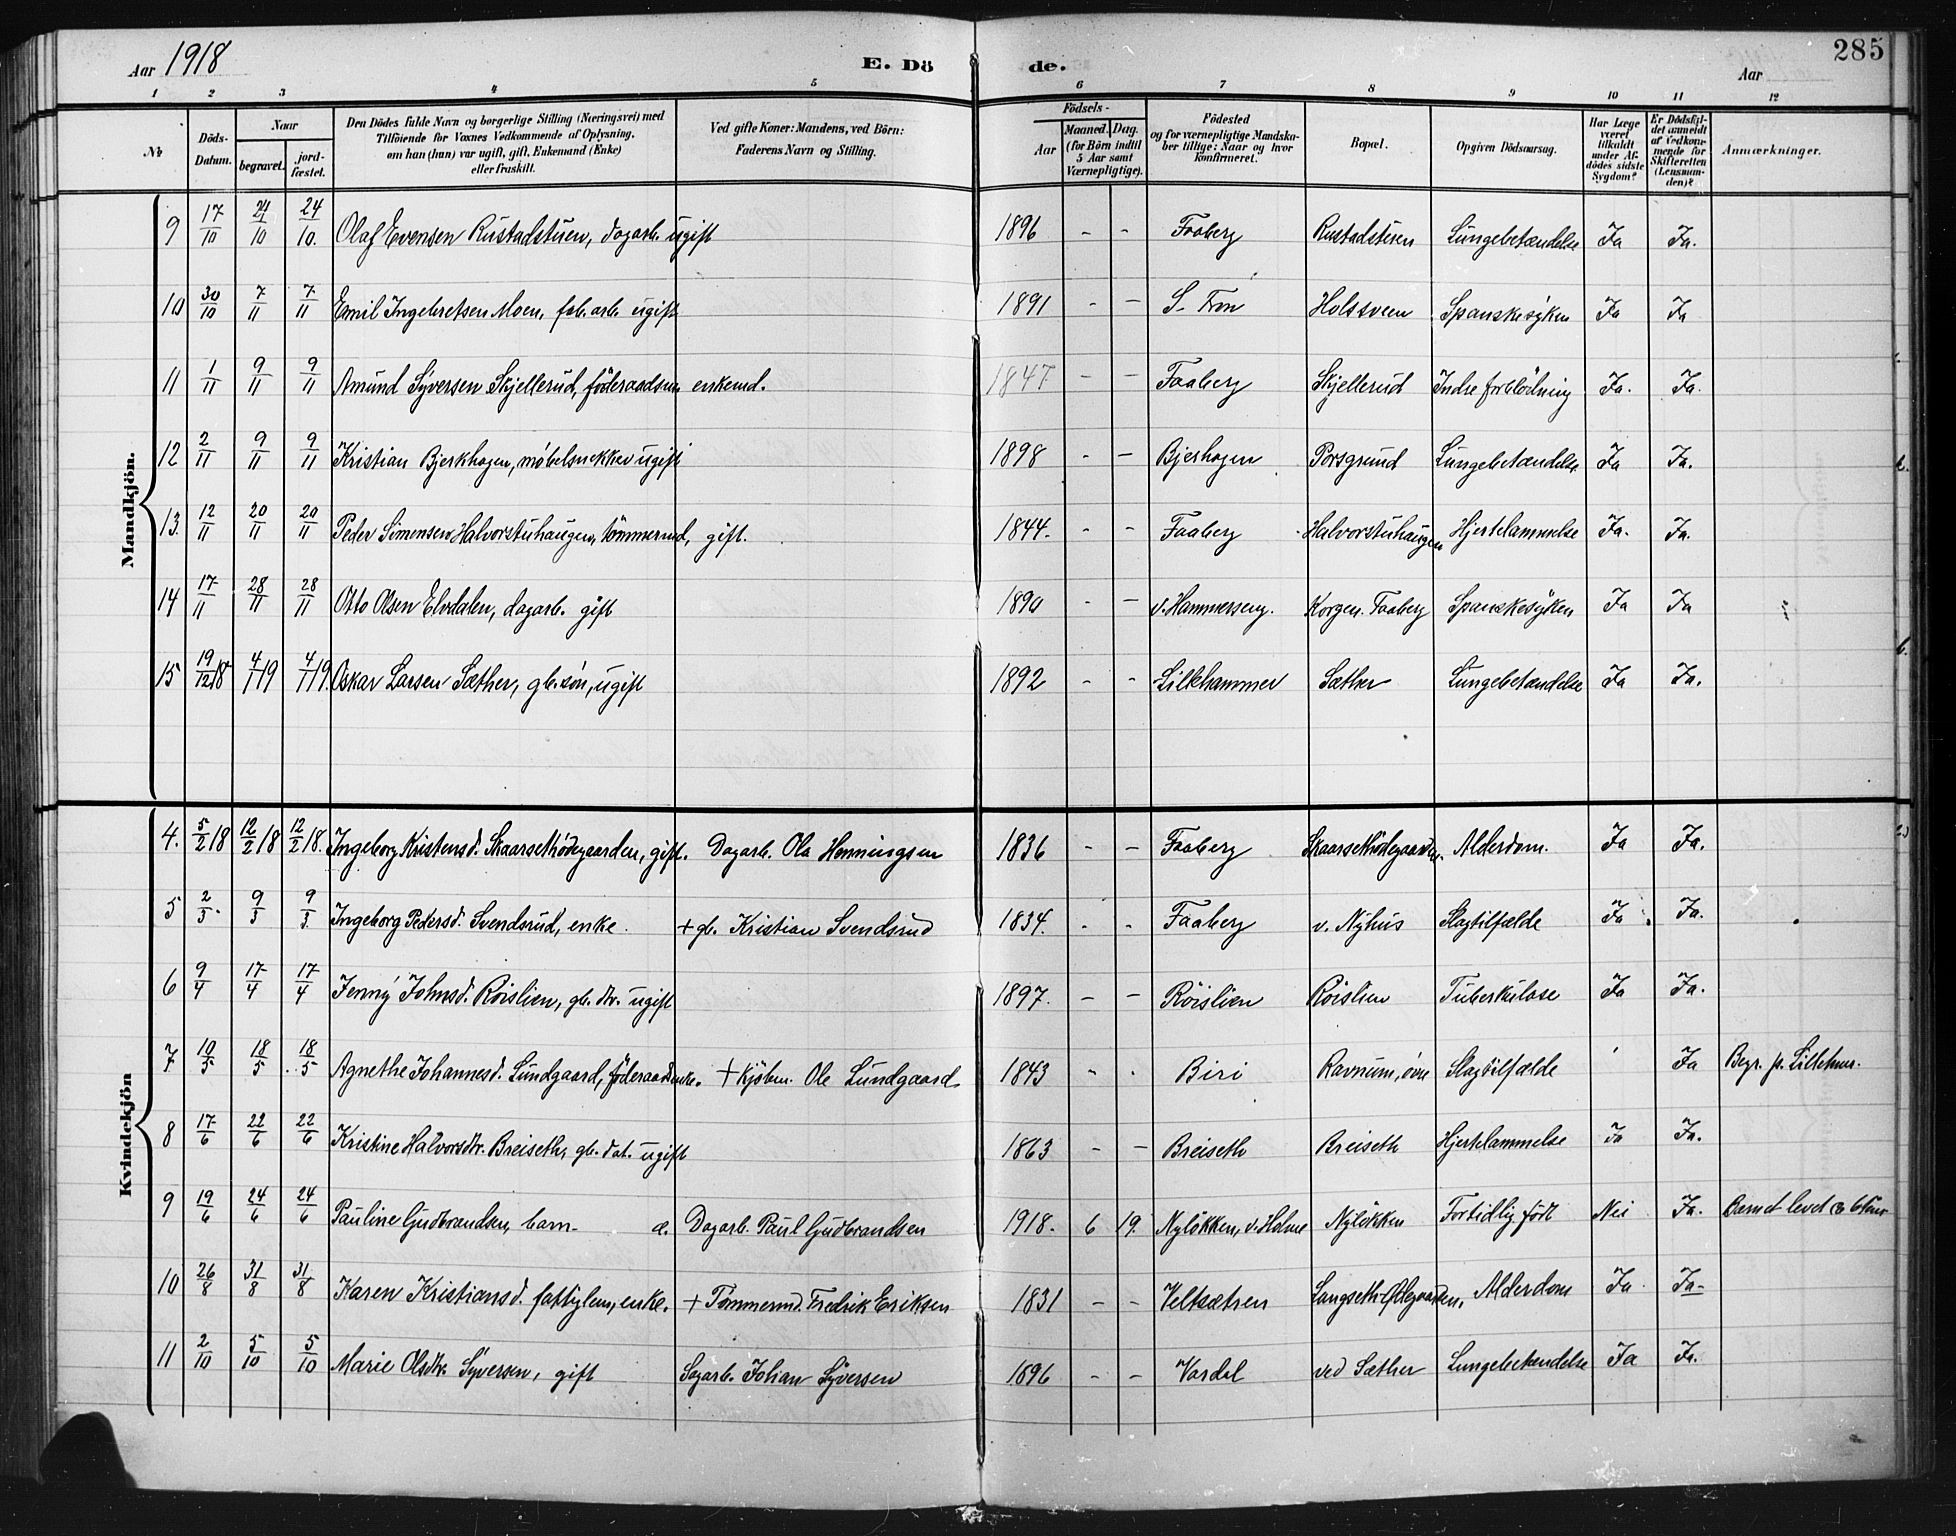 Aar 1918 E. Dö de. Aar 285
1 2 3 4 5 6 7 8 9 10 11 12
No Döds-Datum. Naar begravet. jordfæstet. Den Dödes fulde Navn og borgerlige Stilling (Næringsvei) med Tilföiende for Voxnes Vedkommende af Oplysning, om han (hun) var ugift, gift, Enkemand (Enke) eller fraskilt. Ved gifte Koner: Mandens, ved Börn: Faderens Navn og Stilling. Födsels- Aar Maaned. Dag. (for Börn indtil 5 Aar samt Værnepligtige). Födested og for værnepligtige Mandskaber tillige: Naar og hvor konfirmeret. Bopæl. Opgiven Dödsaarsag. Har Læge været tilkaldt under Afdödes sidste Sygdom? Er Dödsfaldet anmeldt af Vedkommende for Skifteretten (Lensmanden)? Anmærkninger.
Mandkjön.
9 17/10 24/10 24/10. Olaf Evensen Rustadstuen, dagarb. ugift 1896 - - Faaberg Rustadstuen Lungebetændelse Ja Ja.
10 30/10 7/11 7/11 Emil Ingebretsen Moen, fab. arb. ugift 1891 - - S. Fron Holssveen Spanskesyken Ja Ja
11 1/11 9/11 9/11 Amund Syversen Skjellerud, föderaadsm. enkemd. 1847 - - Faaberg Skjellerud Indre forblödning Ja. Ja.
12 2/11 9/11 9/11 Kristian Bjerkhagen, møbelsnekker ugift 1898 - - Bjerhagen Porsgrund Lungebetændelse Ja Ja.
13. 12/11 20/11 20/11 Peder Simensen Halvorstuhaugen, tömmermd, gift. 1844. - - Faaberg Halvorstuhaugen Hjertelammelse Ja. Ja.
14 17/11 28/11 28/11 Otto Olsen Elvdalen, dagarb. gift 1890 - - v. Hammerseng. Korgen. Faaberg Spanskesyken Ja Ja
15 19/12 18 4/1 19 4/1 19. Oskar Larsen Sæther, gb. søn, ugift 1892 - - Lillehammer Sæther Lungebetændelse Ja Ja.
Kvindekjön
4. 5/2 18 12/2 18 12/2 18. Ingeborg Kristensd. Skaarsethödegaarden, gift. Dagarb. Ola Henningsen 1836 - - Faaberg Skaarsethödegaarden. Alderdom. Ja Ja.
5 2/3. 9/3 9/3. Ingeborg Pedersd. Svendsrud, enke. + gb. Kristian Svendsrud 1834. - - Faaberg v. Nyhus Slagtilfælde Ja Ja.
6 9/4 17/4 17/4 Jenny Johnsd. Roislien, gb. dtr. ugift 1897. - - Röislien Roislien Tuberkulose Ja Ja.
7 10/5 18/5 18/5 Agnethe Johannesd. Lundgaard, föderaadenke. + Kjöbm. Ole Lundgaard 1843 - - Biri Ravnum, övre Slagtilfælde Ja Begr. p. Lillehmr.
8 17/6 22/6 22/6 Kristine Halvorsdtr. Breiseth, gb. dat. ugift 1863 - - Breiseth Breiseth Hjertelammelse Ja Ja.
9 19/6 24/6 24/6 Pauline Gudbrandsen, barn- æ. Dagarb. Paul Gudbrandsen 1918. 6 19. Nyløkken, v. Holme Nyløkken Fortidlig født Nei Ja. Barnet levet 6 timer
10 26/8 31/8 31/8 Karen Kristiansd. fattiglem, enke. + Tømmermd. Fredrik Eriksen 1831 - - Veltsætren Langseth-Ødegaarden, Alderdom Ja Ja-
11 2/10 5/10 5/10 Marie Olsdtr. Syversen, gift Sagarb. Johan Syversen 1896 - - Vardal ved Sæther Lungebetændelse Ja Ja.